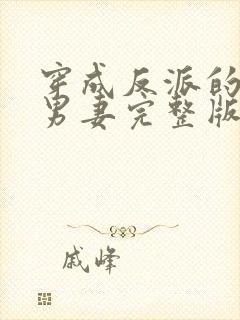 穿成反派的
男妻完整版
戚峰